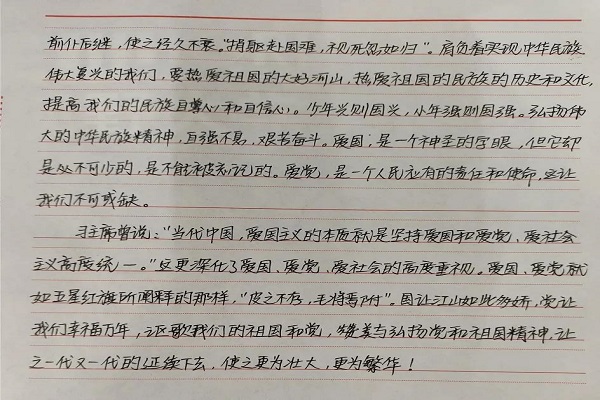 前仆后继，使之经久不衰。“捐躯赴国难，视死忽如归”。肩负着实现中华民族
伟大复兴的我们，要热爱祖国的大好河山，热爱祖国的民族的历史和文化，
提高我们的民族自尊心和自信心。少年兴则国兴，少年强则国强。弘扬伟
大的中华民族精神，自强不息，艰苦奋斗。爱国，是一个神圣的字眼，但它却
是必不可少的，是不能被忘记的。爱党，是一个人民应有的责任和使命，这让
我们不可或缺。
习主席曾说：“当代中国，爱国主义的本质就是坚持爱国和爱党、爱社会
主义高度统一。”这更深化了爱国、爱党、爱社会的高度重视。爱国、爱党就
如五星红旗所阐释的那样，“皮之不存，毛将焉附”。国让江山如此多娇，党让
我们幸福万年，讴歌我们的祖国和党，赞美与弘扬党和祖国精神，让
之一代又一代的延续下去，使之更为壮大，更为繁华！